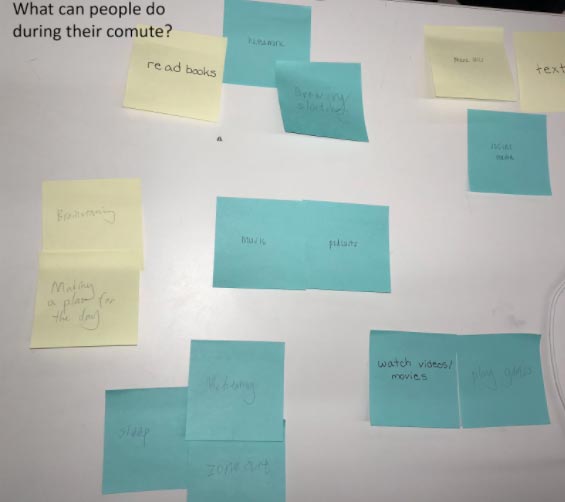 What can people do
during their comute?
read books
homework
Drawing/
phone calls
text
social
media
Brainstorming
Making
a plan for
the day
music
podcasts
watch videos/
movies
play games
sleep
zone out